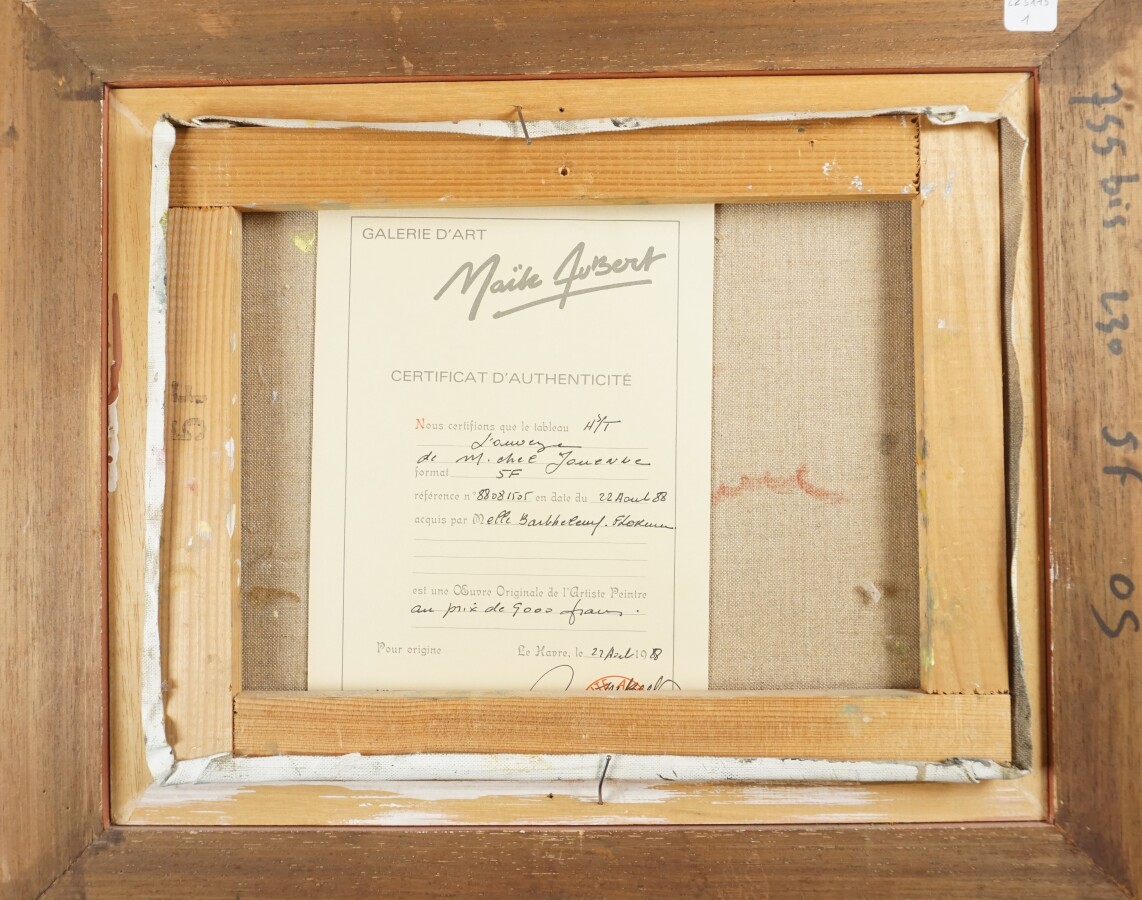 GALERIE D'ART
Maïte Aubert
CERTIFICAT D'AUTHENTICITÉ
Nous certifions que le tableau H/T
de Michel Jouenne
format 5F
référence n° 88081505 en date du 22 Août 88
acquis par Melle
est une Œuvre Originale de l'Artiste Peintre
au prix de 9000 francs.
Pour origine Le Havre, le 22 Août 1988
755 bis 230 5F 05